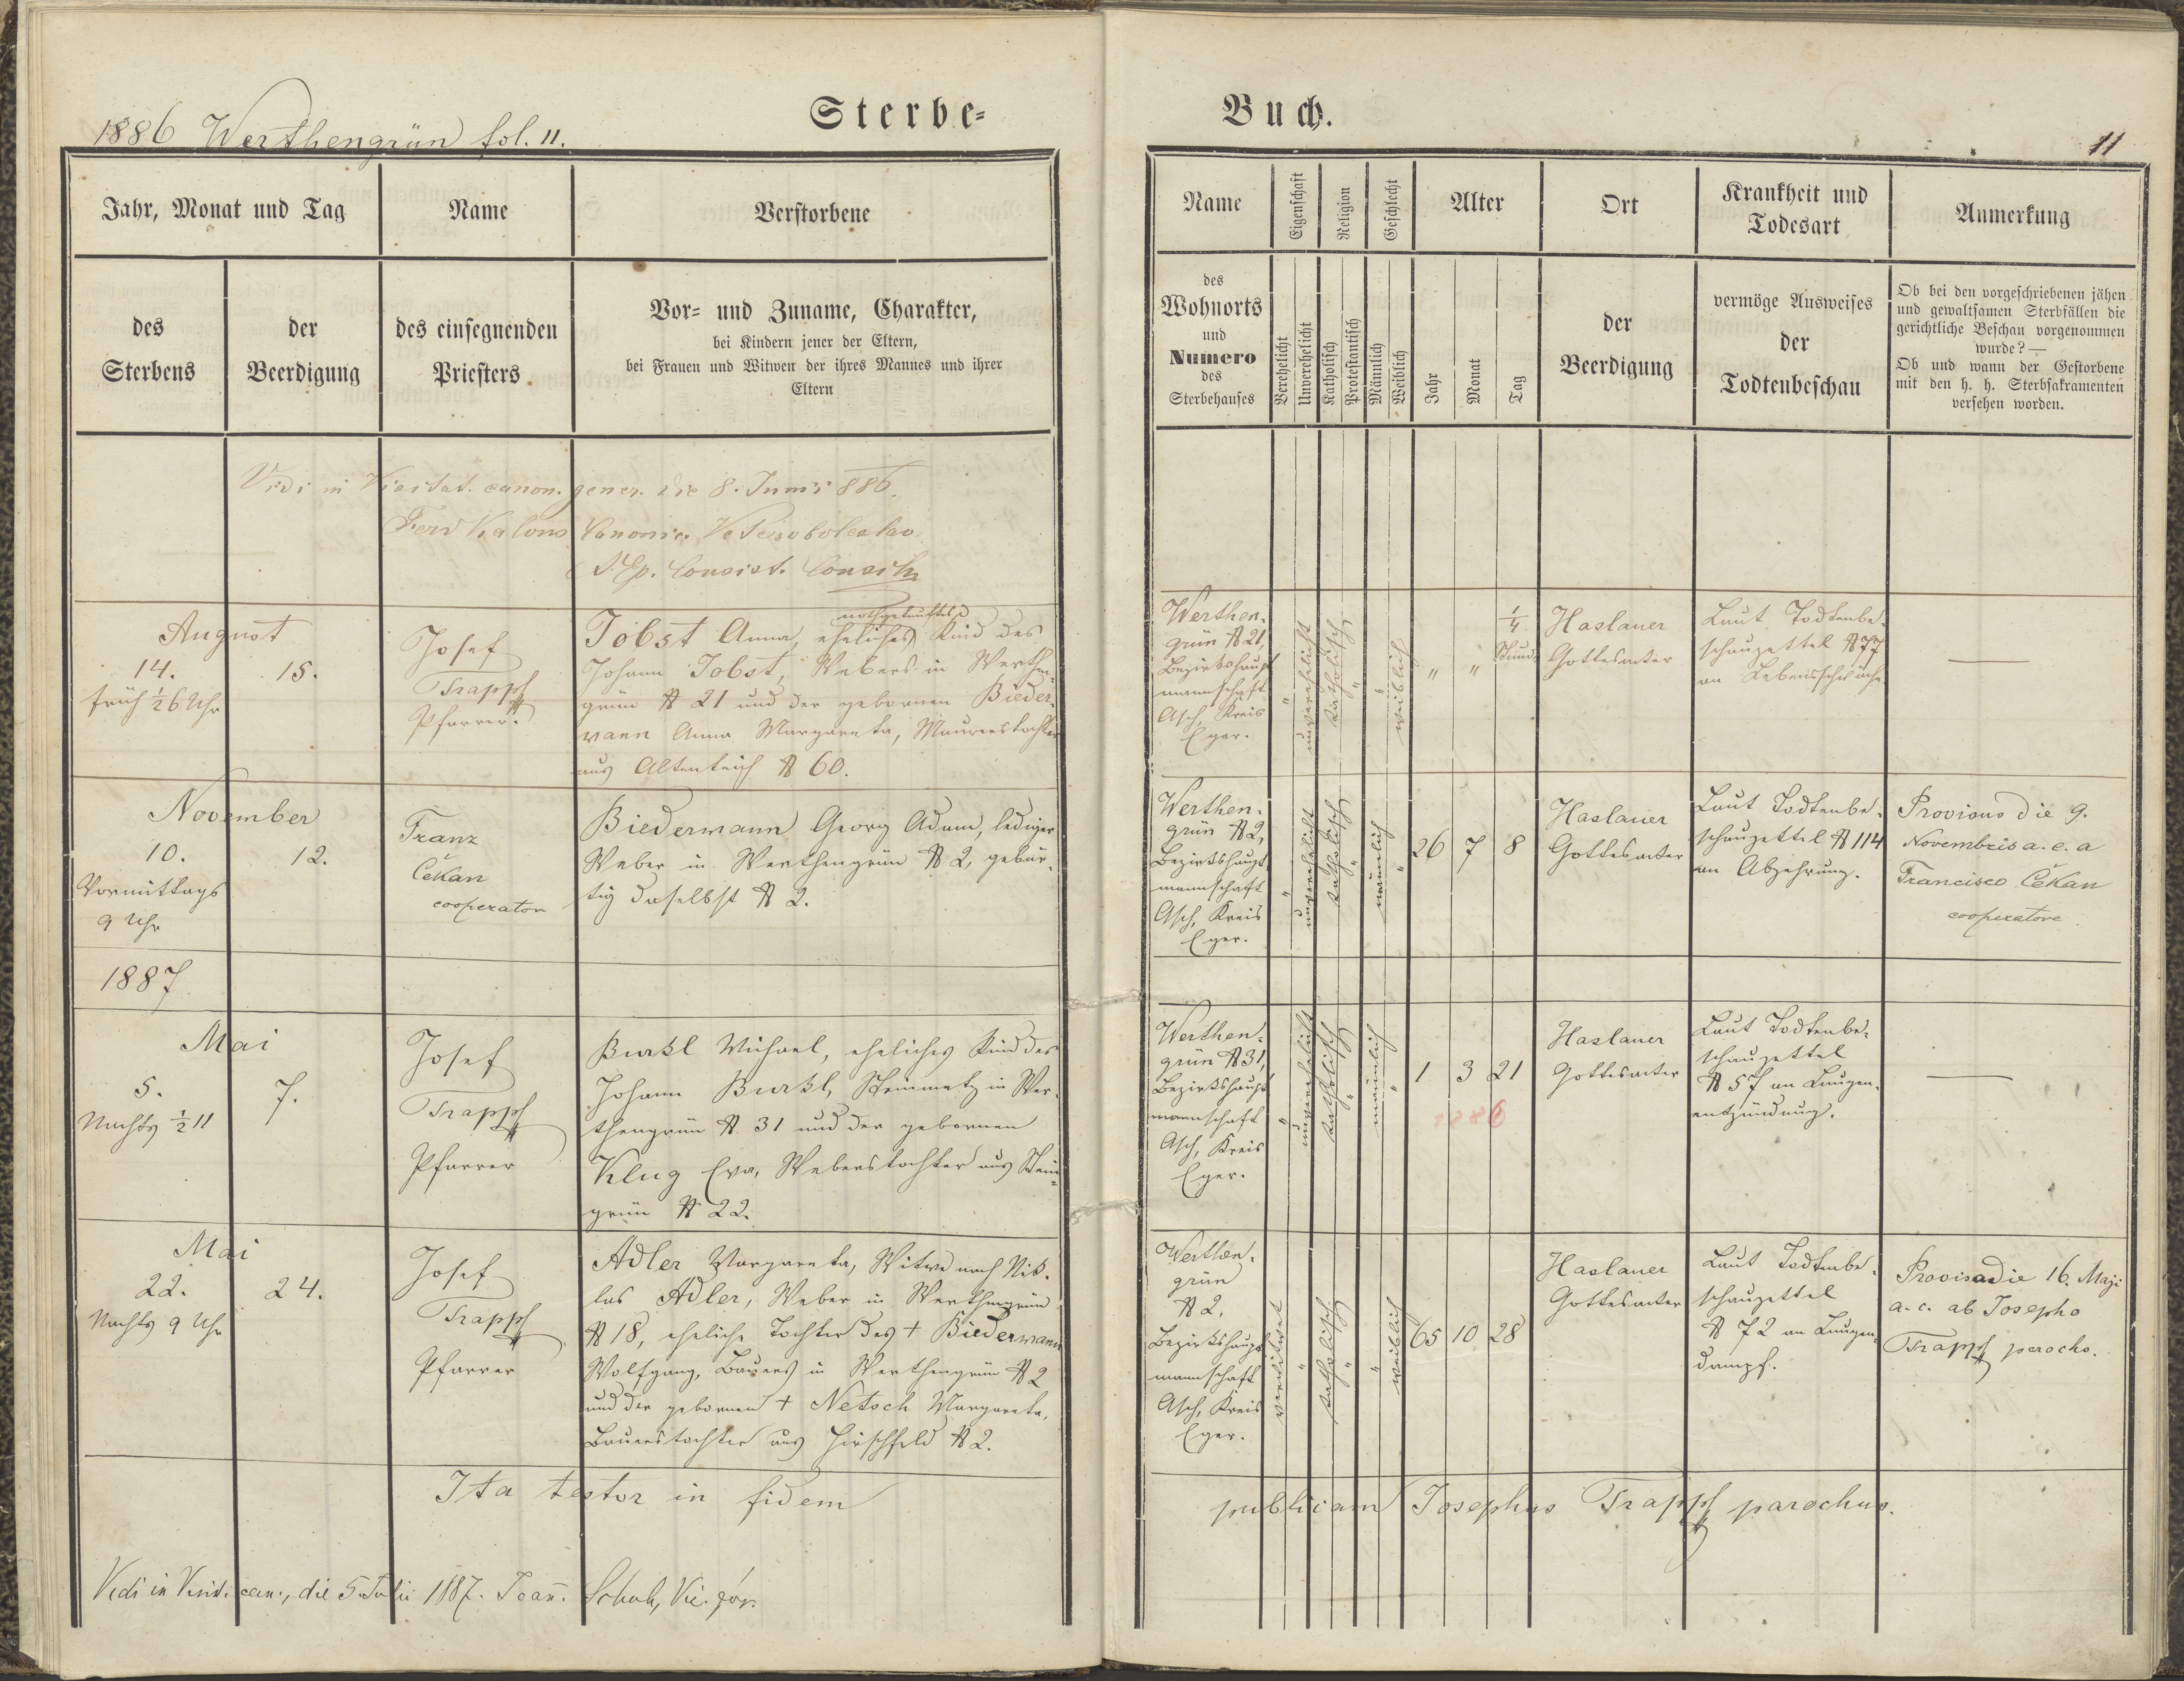 1886 Werthengrün fol. 11.
Sterbe-
Buch.
11
Jahr, Monat und Tag
Name
Verstorbene
Name
Eigenschaft
Religion
Geschlecht
Alter
Ort
Krankheit und
Todesart
Anmerkung
des
Sterbens
der
Beerdigung
des einsegnenden
Priesters
Vor- und Zuname, Charakter,
bei Kindern jener der Eltern,
bei Frauen und Witwen der ihres Mannes und ihrer
Eltern
des
Wohnorts
und
Numero
des
Sterbehauses
Verehelicht
Unverehelicht
Katholisch
Protestantisch
Männlich
Weiblich
Jahr
Monat
Tag
der
Beerdigung
vermöge Ausweises
der
Todtenbeschau
Ob bei den vorgeschriebenen jähen
und gewaltsamen Sterbfällen die
gerichtliche Beschau vorgenommen
wurde? —
Ob und wann der Gestorbene
mit den h. h. Sterbsakramenten
versehen worden.
Vidi in Visitat. canon. gener. die 8. Junii 886.
Ferd Kalous Canonic. Vetero boleslav.
Ep. Consist. Consil.
August
14.
früh ½6 Uhr
15.
Josef
Trapp
Pfarrer.
nothgetauftes
Jobst Anna, eheliches Kind des
Johann Jobst, Webers in Werthen-
grün № 21 und der gebornen Bieder-
mann Anna Margareta, Maurerstochter
aus Altenteich № 60.
Werthen-
grün № 21,
Bezirkshaupt
mannschaft
Asch, Kreis
Eger.
"
unverehelicht
katholisch
"
"
weiblich
"
"
¼
Stund.
Haslauer
Gottesacker
Laut Todtenbe-
schauzettel № 77
an Lebensschwäche
—
November
10.
Vormittags
9 Uhr
12.
Franz
Čekan
cooperator
Biedermann Georg Adam, lediger
Weber in Werthengrün № 2, gebür-
tig daselbst № 2.
Werthen-
grün № 2,
Bezirkshaupt
mannschaft
Asch, Kreis
Eger.
"
unverehelicht
katholisch
"
männlich
"
26
7
8
Haslauer
Gottesacker
Laut Todtenbe-
schauzettel № 114
an Abzehrung.
Provisus die 9.
Novembris a. c. a
Francisco Čekan
cooperatore.
1887
Mai
5.
Nachts ½11
7.
Josef
Trapp
Pfarrer
Burkl Michael, eheliches Kind des
Johann Burkl, Steinmetz in Wer-
thengrün № 31 und der gebornen
Klug Eva, Weberstochter aus Stein-
grün № 22.
Werthen-
grün № 31,
Bezirkshaupt
mannschaft
Asch, Kreis
Eger.
"
unverehelicht
katholisch
"
männlich
"
1
3
21
1886
Haslauer
Gottesacker
Laut Todtenbe-
schauzettel
№ 57 an Lungen-
entzündung.
—
Mai
22.
Nachts 9 Uhr
24.
Josef
Trapp
Pfarrer
Adler Margareta, Witwe nach Nik-
las Adler, Weber in Werthengrün
№ 18, eheliche Tochter des † Biedermann
Wolfgang, Bauers in Werthengrün № 2
und der gebornen † Netsch Margareta,
Bauerstochter aus Hirschfeld № 2.
Werthen-
grün
№ 2,
Bezirkshaupt
mannschaft
Asch, Kreis
Eger.
verwitwet
"
katholisch
"
"
weiblich
65
10
28
Haslauer
Gottesacker
Laut Todtenbe-
schauzettel
№ 72 an Lungen-
dampf.
Provisa die 16. Maji
a. c. ab Josepho
Trapp parocho.
Ita testor in fidem
publicam Josephus Trapp parochus.
Vidi in Visit. can., die 5. Julii 1887. Joan. Schuh, Vic. for.